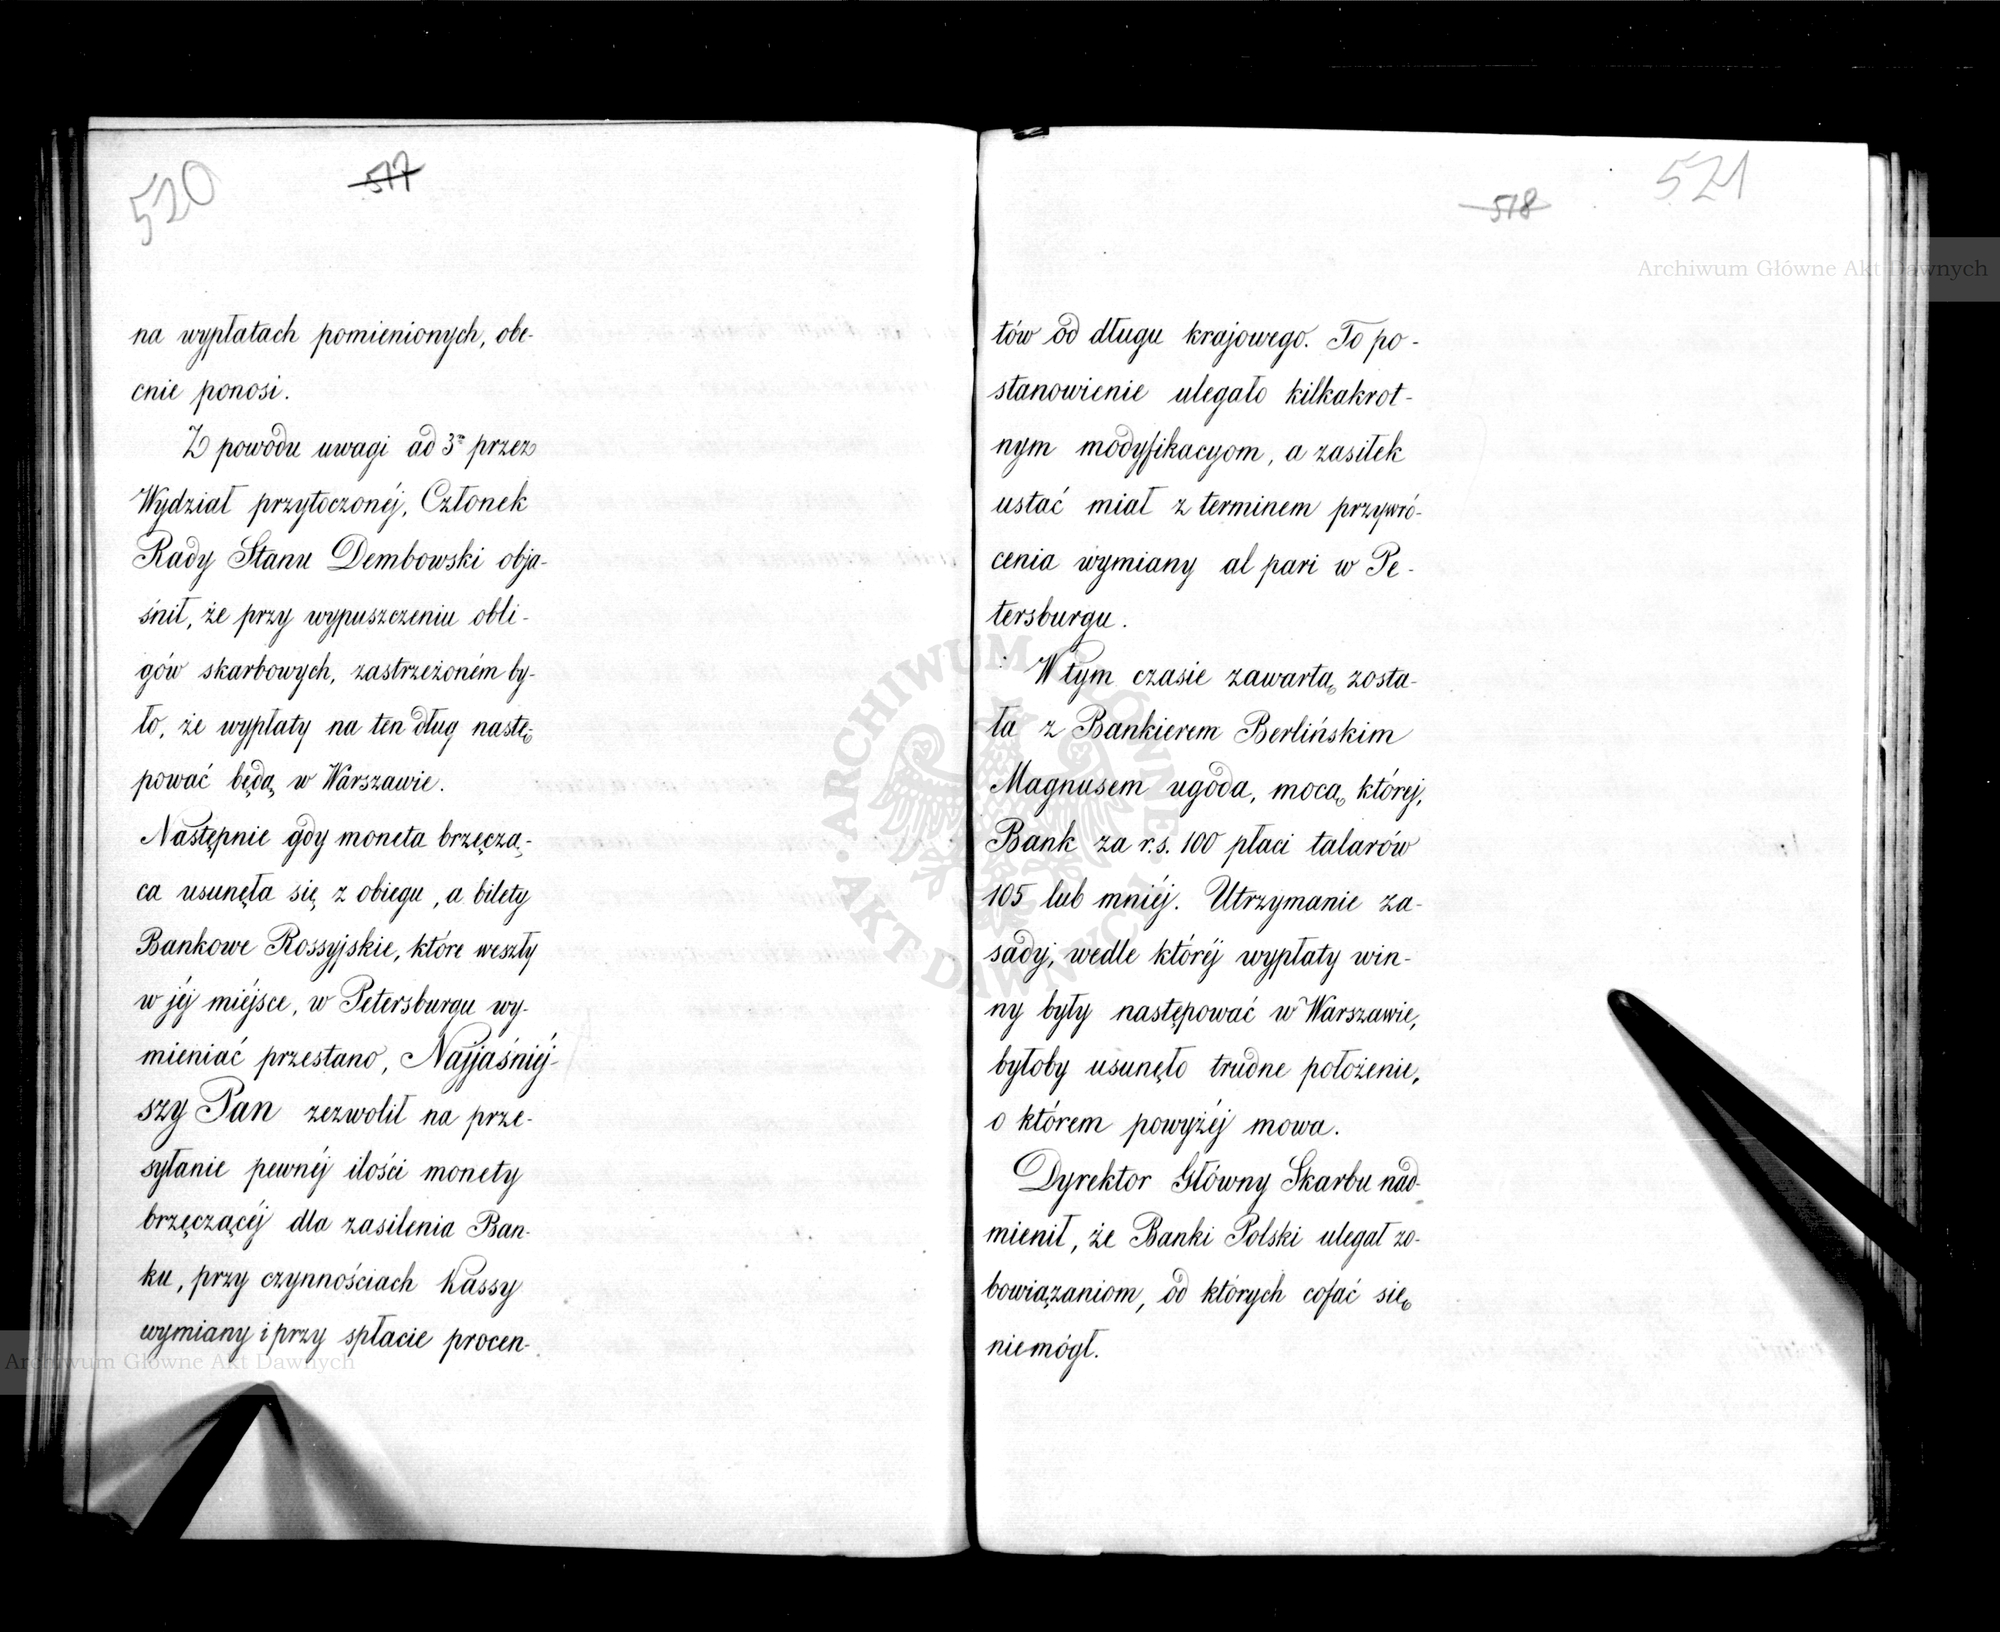 520
517
na wypłatach pomienionych, obe-
cnie ponosi.
Z powodu uwagi ad 3m przez
Wydział przytoczonéj, Członek
Rady Stanu Dembowski obja-
śnił, że przy wypuszczeniu obli-
gów skarbowych, zastrzeżoném by-
ło, że wypłaty na ten dług nastę-
pować będą, w Warszawie.
Następnie gdy moneta brzęczą-
ca usunęła się z obiegu, a bilety
Bankowe Rossyjskie, które weszły
w jéj miéjsce, w Petersburgu wy-
mieniać przestano, Najjaśniéj-
szy Pan zezwolił na prze-
syłanie pewnéj ilości monety
brzęczącéj dla zasilenia Ban-
ku, przy czynnościach Kassy
wymiany i przy spłacie procen-
518
521
tów od długu krajowego. To po-
stanowienie ulegało kilkakrot-
nym modyfikacyom, a zasiłek
ustać miał z terminem przywró-
cenia wymiany al pari w Pe-
tersburgu.
W tym czasie zawartą zosta-
ła z Bankierem Berlińskim
Magnusem ugoda, mocą której,
Bank za r.s. 100 płaci talarów
105 lub mniéj. Utrzymanie za-
sady, wedle któréj wypłaty win-
ny były następować w Warszawie,
byłoby usunęło trudne położenie,
o którem powyżéj mowa.
Dyrektor Główny Skarbu nad-
mienił, że Banki Polski ulegał zo-
bowiązaniom, od których cofać się
niemógł.
Archiwum Główne Akt Dawnych
Archiwum Główne Akt Dawnych
ARCHIWUM GŁÓWNE AKT DAWNYCH